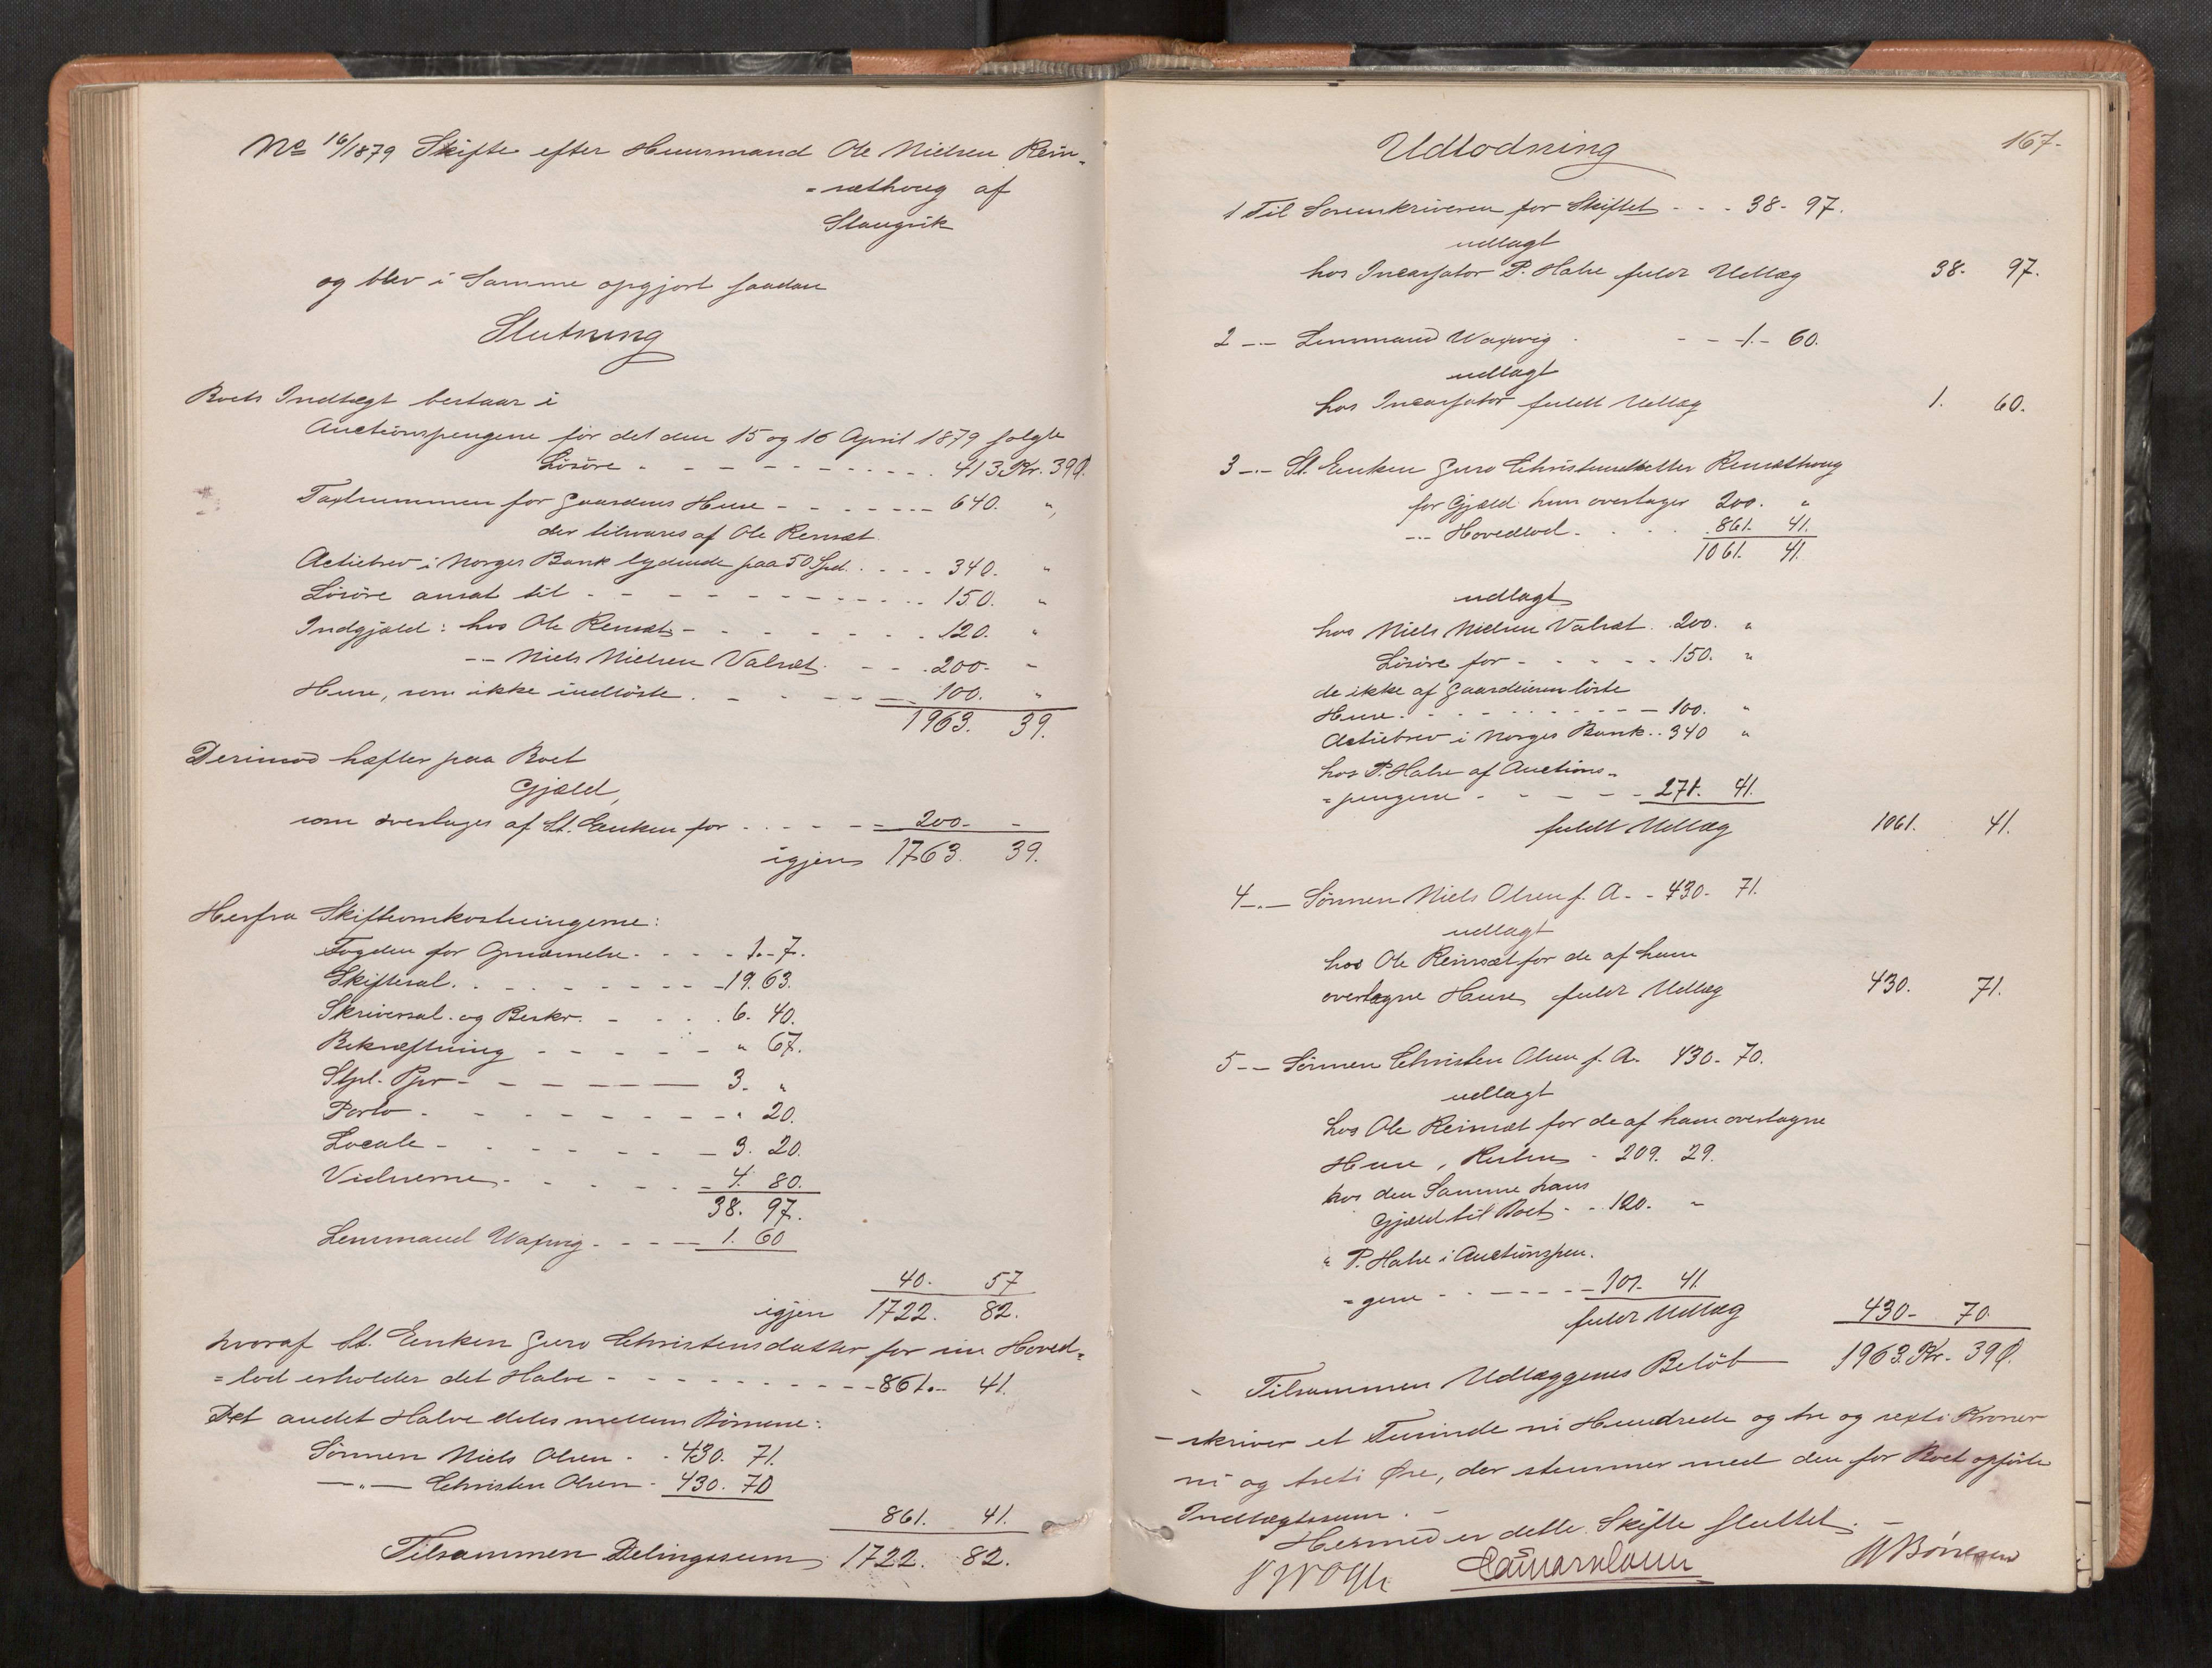 No 16/1879 Skifte efter Huusmand Ole Nielsen Rem-
=sæthoug af
Slaugvik
og blev i Samme opgjort saadan
Slutning
Boets Indtægt bestaar i
Auctionspengene for det den 15 og 16 April 1879 solgte
Lösöre - - - - - - - - - - - 413 Kr. 39 Ø.
Taxtsummen for Gaardens Huse - - - - - - 640. "
der tilsvares af Ole Remsæt
Actiebrev i Norges Bank lydende paa 50 Spd. - - - - 340. "
Lösöre ansat til - - - - - - - - - - - - 150. "
Indgjæld: hos Ole Remsæt - - - - - - - 120. "
-- Niels Nielsen Valsæt - - - 200. -
Huse, som ikke indlöste - - - - - 100. "
1963. 39.
Derimod hæfter paa Boet
Gjæld,
som overtages af St. Enken for - - - - - 200. -
igjen 1763. 39.
Herfra Skifteomkostningerne:
Fogden for Opnævnelse - - - - 1. 7.
Skiftesal. - - - - - - - - 19. 63.
Skriversal. og Beskr. - - - - 6. 40.
Bekræftning - - - - - " 67.
Stpl. Ppr - - - - - - 3. "
Porto - - - - - - - - - " 20.
Locale - - - - - - - 3. 20.
Vidnerne - - - - - - 4. 80.
38. 97.
Lensmand Waxvig - - - - 1. 60
40. 57
igjen 1722. 82.
hvoraf St. Enken Guro Christensdatter for sin Hoved-
=lod erholder det Halve - - - - - - - - - 861. 41.
Det andet Halve deles mellem Börnene:
Sönnen Niels Olsen - - 430. 71.
—"— Christen Olsen - 430. 70
861. 41.
Tilsammen Delingssum 1722. 82.
167.
Udlodning
1 Til Sorenskriveren for Skiftet - - - 38. 97.
udlagt
hos Incassator P. Halse fuldt Udlæg 38. 97.
2 -"- Lensmand Waxvig - - - 1. 60.
udlagt
hos Incassator fuldt Udlæg 1. 60.
3 -"- St. Enken Guro Christensdatter Remsæthoug
for Gjæld hun overtager 200. "
-"- Hovedlod - - - - 861. 41.
1061. 41.
udlagt
hos Niels Nielsen Valsæt. 200. "
Lösöre for - - - - - 150. "
de ikke af Gaardeieren löste
Huse - - - - - - - - - - 100. "
Actiebrev i Norges Bank - - 340 "
hos P. Halse af Auctions-
=pengene - - - - - 271. 41.
fuldt Udlæg 1061. 41.
4 -"- Sönnen Niels Olsen f. A. - - 430. 71.
udlagt
hos Ole Remsæt for de af ham
overtagne Huse fuldt Udlæg 430. 71.
5 - - Sönnen Christen Olsen f. A. 430. 70.
udlagt
hos Ole Remsæt for de af ham overtagne
Huse, Resten - 209. 29.
hos den Samme hans
Gjæld til Boet - - 120. "
" P. Halse i Auctionspen-
=gene - - - - - - 101. 41.
fuldt Udlæg 430. 70.
Tilsammen Udlæggenes Belöb 1963 Kr. 39 Ø.
- skriver et Tusinde ni Hundrede og tre og sexti Kroner
ni og treti Öre, der stemmer med den for Boet opförte
Indtægtssum. -
Hermed er dette Skifte sluttet. -